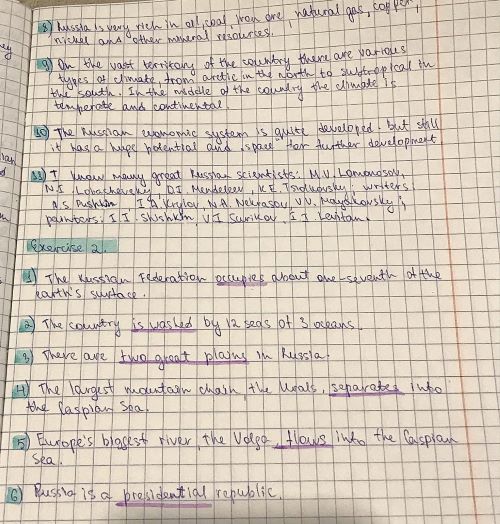 8) Russia is very rich in oil, coal, iron ore, natural gas, copper,
nickel and other mineral resources.
9) On the vast territory of the country there are various
types of climate, from arctic in the north to subtropical in
the south. In the middle of the country the climate is
temperate and continental.
10) The Russian economic system is quite developed, but still
it has a huge potential and "space" for further development
11) I know many great Russian scientists: M.V. Lomonosov,
N.I. Lobachevsky, D.I. Mendeleev, K.E. Tsiolkovsky; writers:
A.S. Pushkin I.A. Krylov, N.A. Nekrasov, V.V. Mayakovsky;
painters: I.I. Shishkin, V.I. Surikov, I.I. Levitan.
Exercise 2.
1) The Russian Federation occupies about one-seventh of the
earth's surface.
2) The country is washed by 12 seas of 3 oceans.
3) There are two great plains in Russia.
4) The largest mountain chain, the Urals, separates into
the Caspian Sea.
5) Europe's biggest river, the Volga, flows into the Caspian
Sea.
6) Russia is a presidential republic.